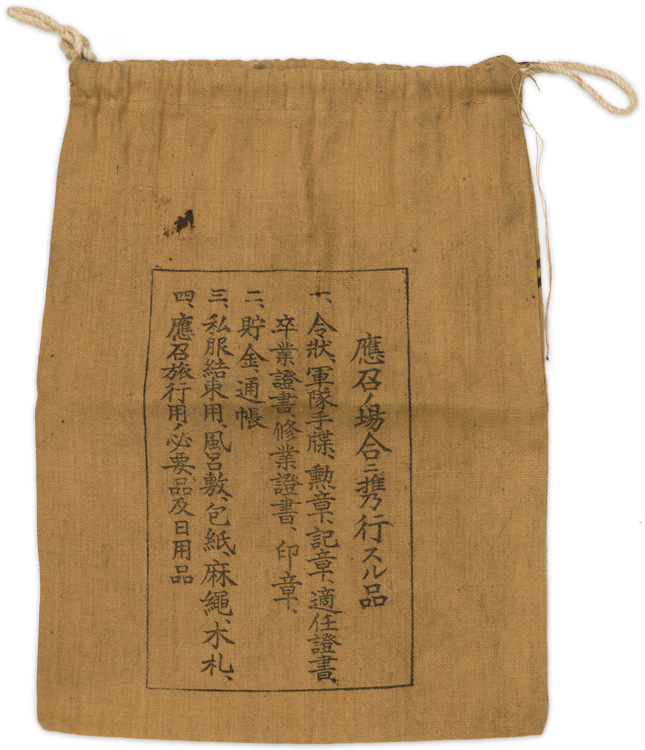 應召ノ場合ニ携行スル品
一、令狀、軍隊手牒、勲章、記章、適任證書、
卒業證書、修業證書、印章、
二、貯金、通帳
三、私服結束用、風呂敷、包紙、麻繩、木札、
四、應召旅行用ノ必要品及日用品